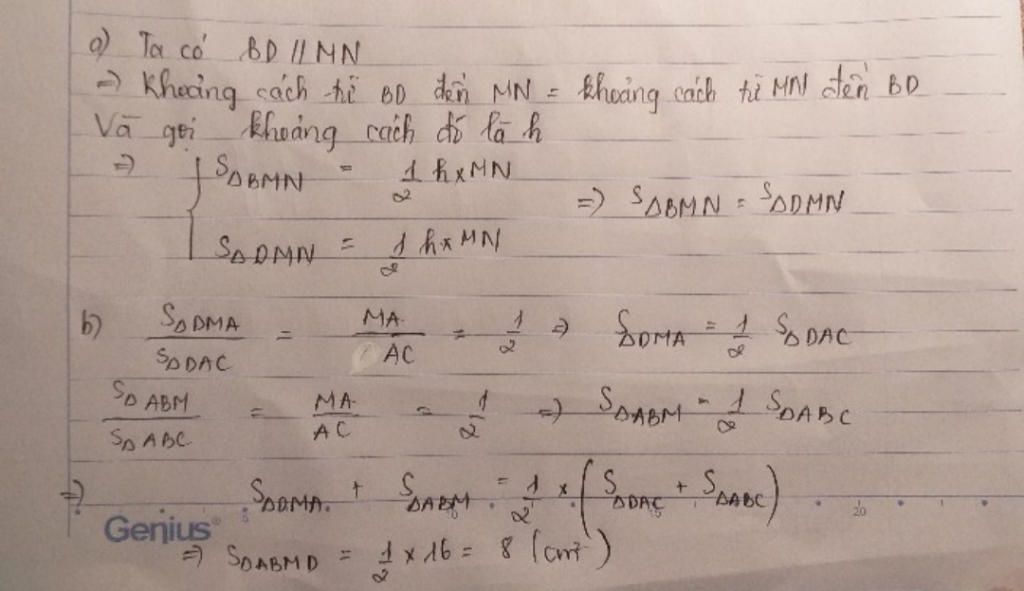 a) Ta có BD // MN
=> Khoảng cách từ BD đến MN = khoảng cách từ MN đến BD
Và gọi khoảng cách đó là h
=> { SΔBMN = 1/2 h x MN
SΔDMN = 1/2 h x MN => SΔBMN = SΔDMN
b) SΔDMA / SΔDAC = MA / AC = 1/2 => SΔDMA = 1/2 SΔDAC
SΔABM / SΔABC = MA / AC = 1/2 => SΔABM = 1/2 SΔABC
=> SΔDMA + SΔABM = 1/2 x (SΔDAC + SΔABC)
Genius® 5 10 15 20
=> SΔABMD = 1/2 x 16 = 8 (cm²)